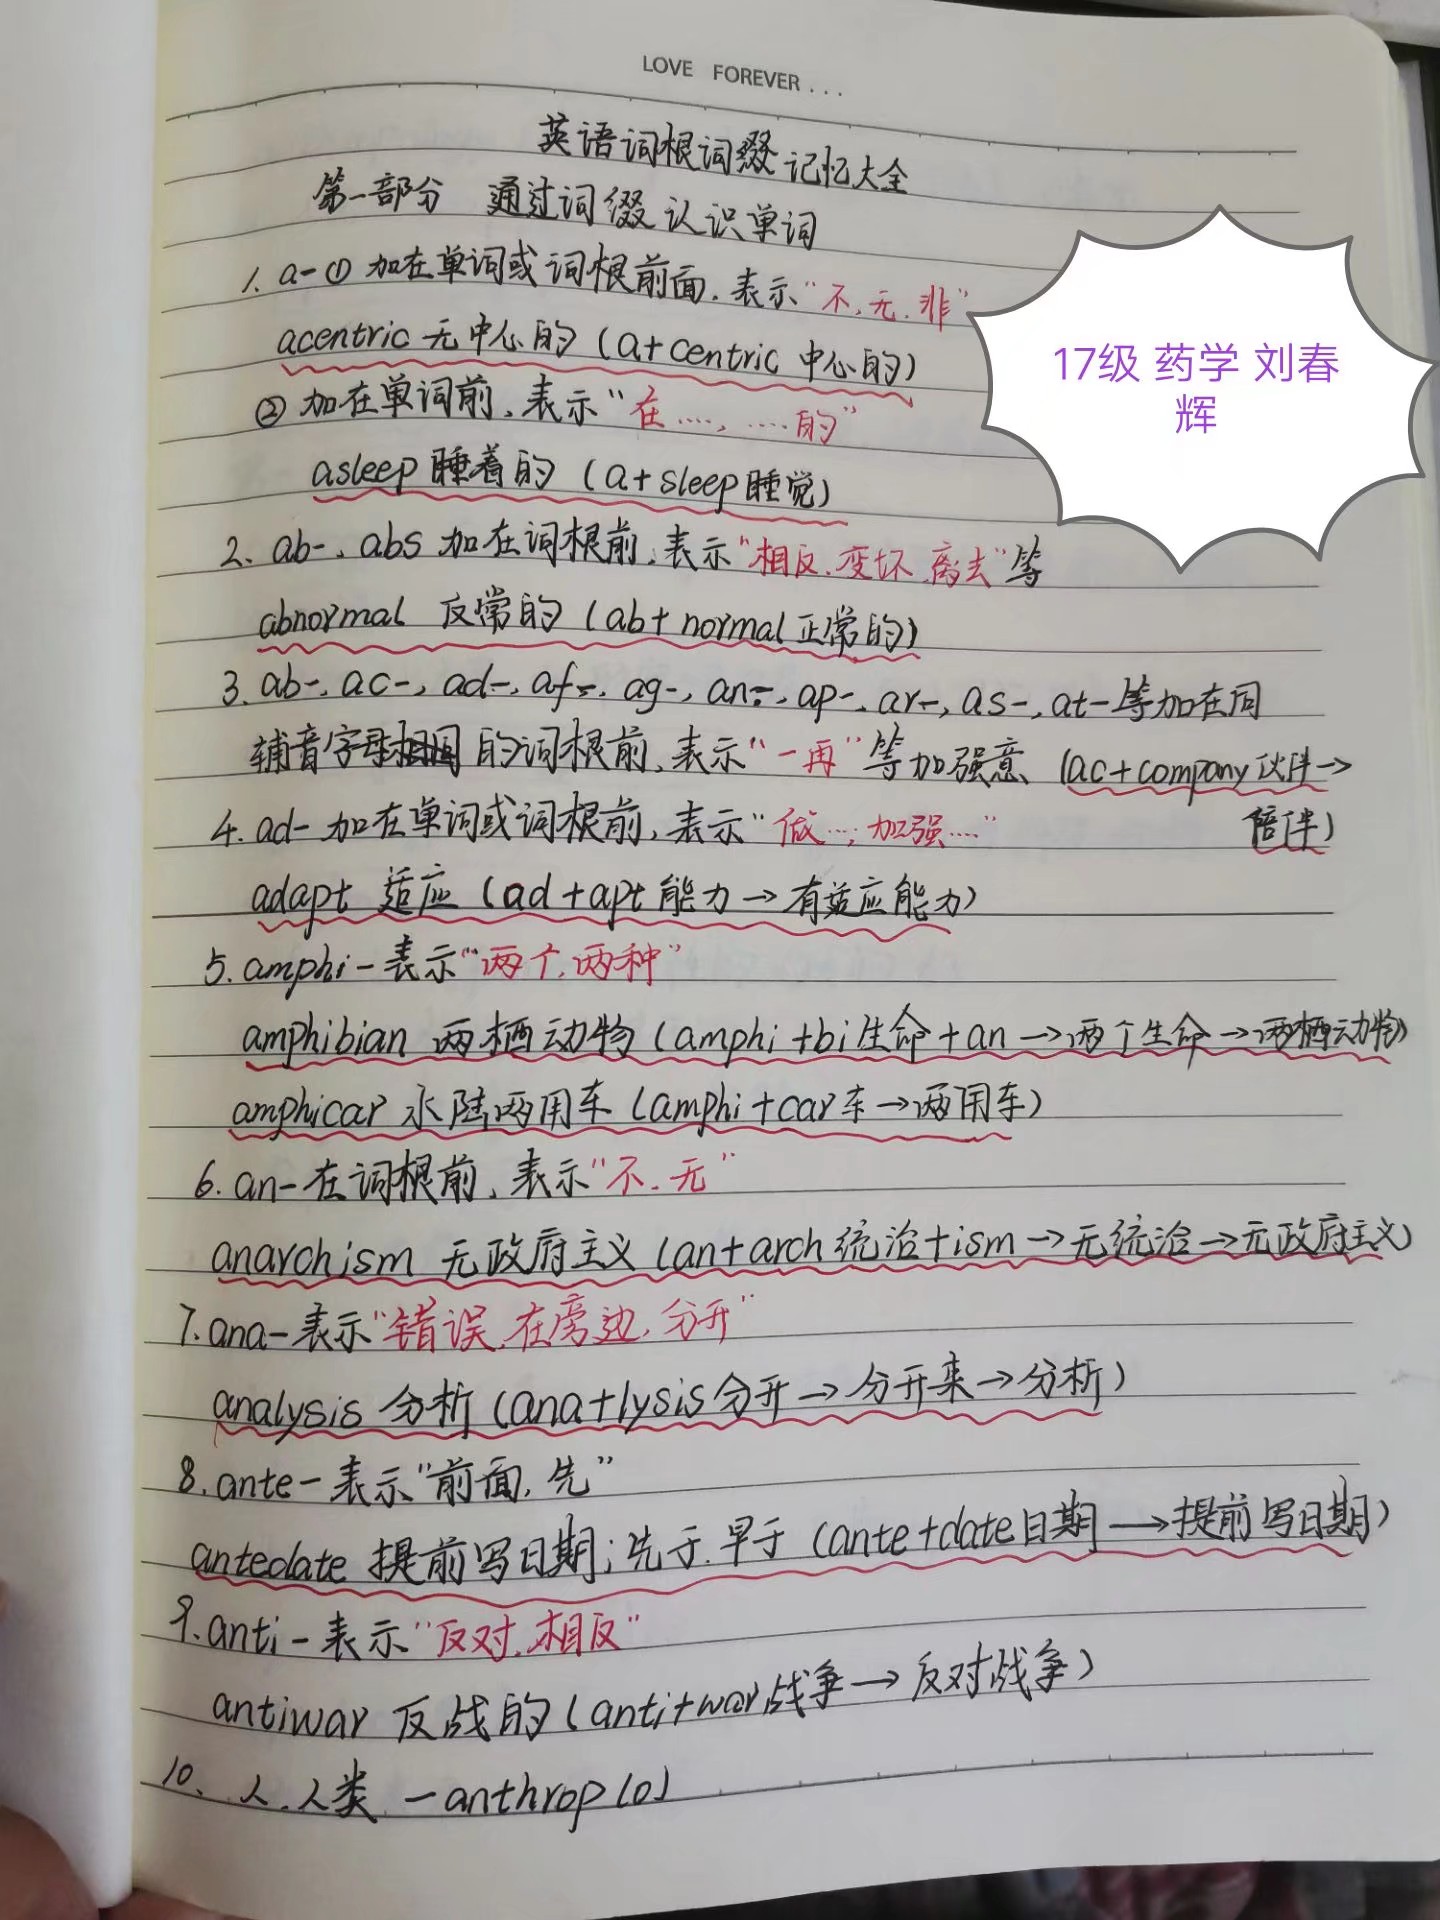 LOVE FOREVER...
英语词根词缀记忆大全
第一部分 通过词缀认识单词
1. a-① 加在单词或词根前面,表示"不,无,非"
acentric 无中心的 (a+centric 中心的)
② 加在单词前,表示"在....,....的"
asleep 睡着的 (a+sleep 睡觉)
17级 药学 刘春
辉
2. ab-, abs 加在词根前,表示"相反,变坏,离去"等
abnormal 反常的 (ab+normal 正常的)
3. ab-, ac-, ad-, af-, ag-, an-, ap-, ar-, as-, at-等加在同
辅音字母相同的词根前,表示"一再"等加强意 (ac+company伙伴→
陪伴)
4. ad- 加在单词或词根前,表示"做...,加强...."
adapt 适应 (ad+apt 能力→有适应能力)
5. amphi-表示"两个,两种"
amphibian 两栖动物 (amphi+bi生命+an→两个生命→两栖动物)
amphicar 水陆两用车 (amphi+car车→两用车)
6. an-在词根前,表示"不,无"
anarchism 无政府主义 (an+arch统治+ism→无统治→无政府主义)
7. ana-表示"错误,在旁边,分开"
analysis 分析 (ana+lysis分开→分开来→分析)
8. ante-表示"前面,先"
antedate 提前写日期;先于,早于 (ante+date日期→提前写日期)
9. anti-表示"反对,相反"
antiwar 反战的 (anti+war战争→反对战争)
10. 人,人类 -anthrop(o)